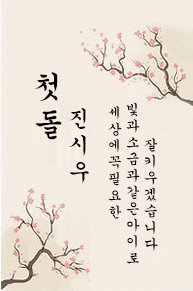 첫돌
진시우
세상에 꼭 필요한
빛과 소금과 같은 아이로
잘 키우겠습니다